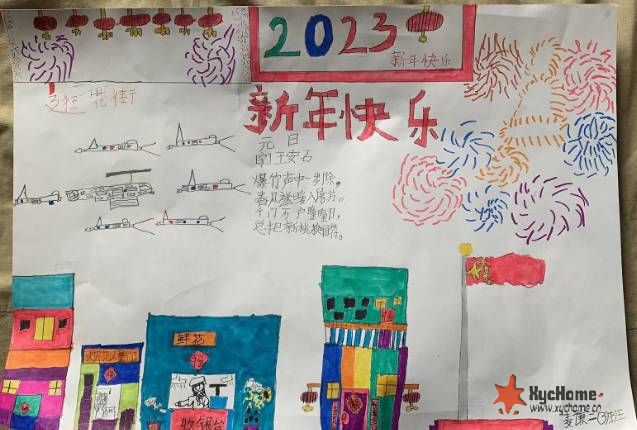 2023
新年快乐
逛花街
新年快乐
元日
王安石
爆竹声中一岁除，
春风送暖入屠苏。
千门万户曈曈日，
总把新桃换旧符。
鲜花
收银台
XycHome
www.xychome.cn